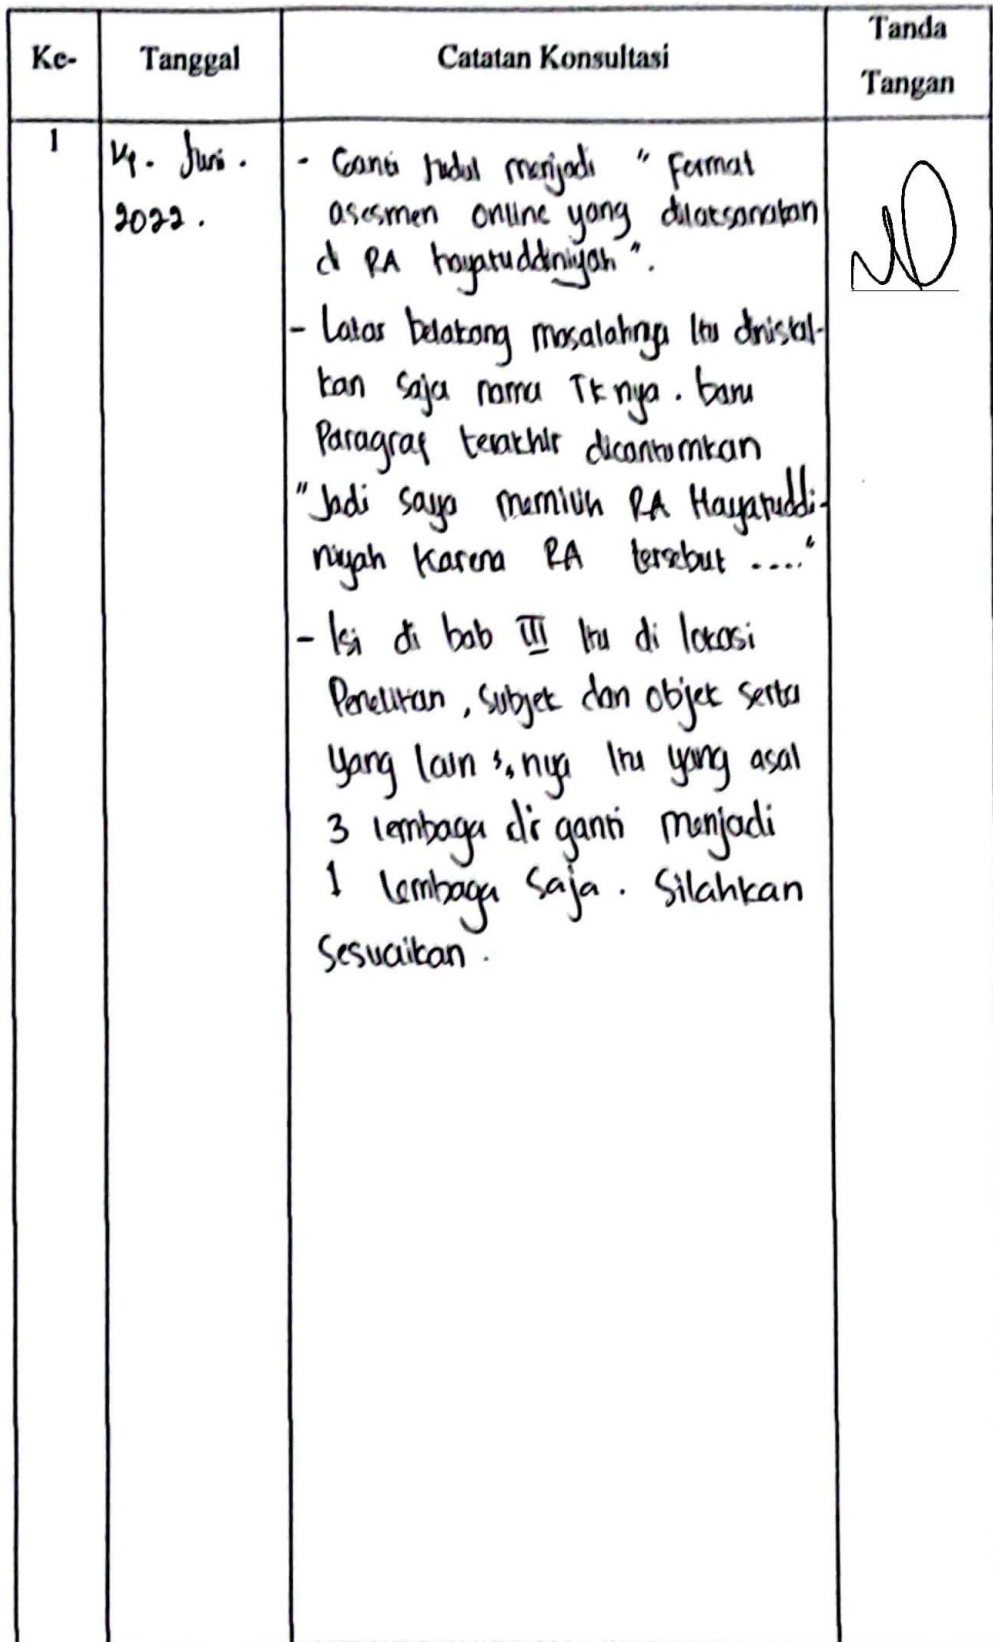 Ke- Tanggal Catatan Konsultasi Tanda Tangan
1
Juni.
2022.
- Ganti judul menjadi " Format
asesmen online yang dilaksanakan
di RA hayatuddiniyah".
- Latar belakang masalahnya itu dinistal-
kan saja nama TK nya. baru
Paragraf terakhir dicantumkan
"Jadi saya memilih RA Hayatuddi-
niyah karena RA tersebut ...."
- Isi di bab III itu di lokasi
Penelitian, Subjek dan objek serta
yang lain nya itu yang asal
3 lembaga di ganti menjadi
1 lembaga saja. Silahkan
Sesuaikan.